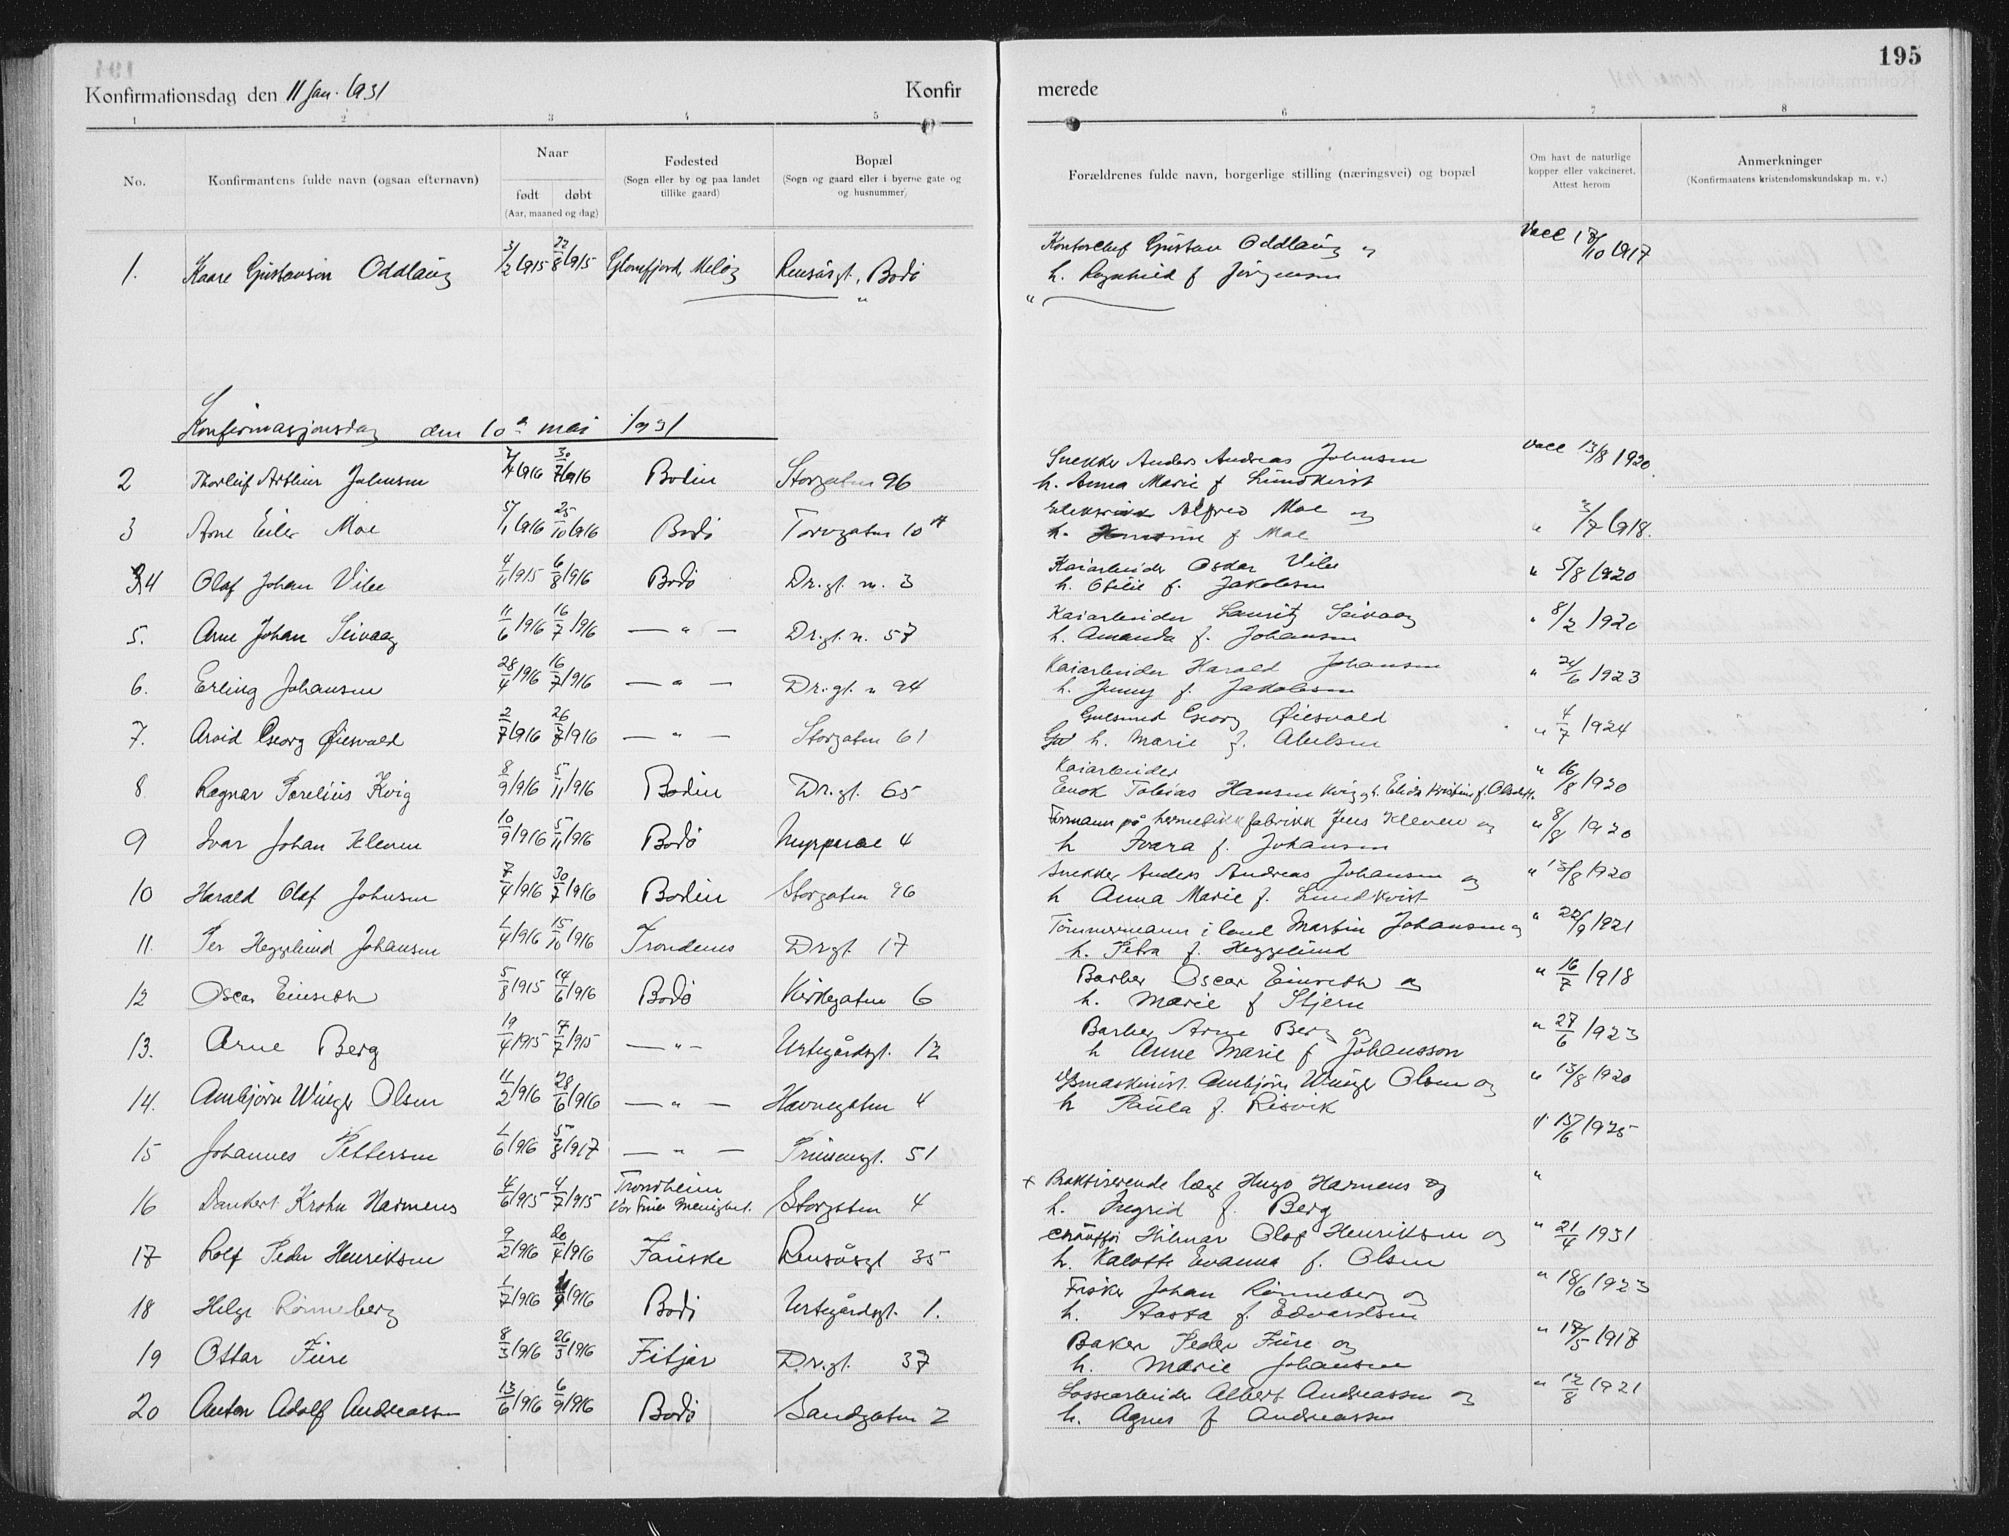 195
Konfirmationsdag den 11 Jan. 1931
Konfir
merede
1 2 3 4 5 6 7 8
No.
Konfirmantens fulde navn (ogsaa efternavn)
Naar
født døbt
(Aar, maaned og dag)
Fødested
(Sogn eller by og paa landet
tillike gaard)
Bopæl
(Sogn og gaard eller i byerne gate og
og husnummer)
Forældrenes fulde navn, borgerlige stilling (næringsvei) og bopæl
Om havt de naturlige
kopper eller vakcineret.
Attest herom
Anmerkninger
(Konfirmantens kristendomskundskap m. v.)
1. Kaare Gustavson Oddlaug 3/2 1915 22/8 1915 Glomfjord, Meløy Rensåsgt., Bodø
Kontorchef Gustav Oddlaug og Vacc 18/10 1917
h. Ragnhild f Jørgensen
Konfirmasjonsdag den 10de mai 1931
2 Thorleif Arthur Johnsen 7/4 1916 30/7 1916 Bodin Storgaten 96
Snekker Anders Andreas Johnsen vacc 13/8 1920.
h. Anna Marie f Lundkvist
3 Arne Eiler Moe 5/1 1916 25/10 1916 Bodø Torvgaten 10 A
Alfred Moe og " 3/7 1918.
h. f Moe
4 Olaf Johan Vibe 4/11 1915 6/8 1916 Bodø Dr.gt. n. 3
Kaiarbeider Oskar Vibe " 5/8 1920
h. Otilie f. Jakobsen
5. Arne Johan Seivaag 11/6 1916 16/7 1916 — " — Dr.gt. n. 57
Kaiarbeider Lauritz Seivaag " 8/2 1920
h. Amanda f. Johansen
6. Erling Johansen 28/4 1916 16/7 1916 — " — Dr.gt. n 94
Kaiarbeider Harald Johansen " 24/6 1923
h. Jenny f. Jakobsen
7. Arvid Georg Øiesvold 2/7 1916 26/8 1916 — " — Storgaten 61
Gulsmed Georg Øiesvold " 4/7 1924
h. Marie f. Abelsen
8 Ragnar Parelius Kvig 8/9 1916 5/11 1916 Bodin Dr.gt. 65
Kaiarbeider " 16/8 1920
Enok Tobias Hansen Kvig og h. Elida Kristine f.
9 Ivar Johan Kleven 10/9 1916 5/11 1916 Bodø Myrparae 4
Formann på hermetikkfabrikk Jens Kleven og " 8/8 1920
h Ivara f. Johansen
10 Harald Olaf Johnsen 7/4 1916 30/7 1916 Bodin Storgaten 96
Snekker Anders Andreas Johansen og " 13/8 1920
h Anna Marie f. Lundkvist
11. Per Hegglund Johansen 1/4 1916 15/10 1916 Trondenes Dr.gt. 17
Tømmermann i land Martin Johansen og " 20/9 1921
h. Petra f. Hegglund
12 Oscar Einseth 5/8 1915 14/6 1916 Bodø Kirkegaten 6
Barber Oscar Einseth og " 16/7 1918
h. Marie f Stjern
13. Arne Berg 19/4 1915 7/7 1915 — " — Urtegårdsgt. 12
Barber Arne Berg og " 27/6 1923
h Anne Marie f Johansson
14. Ambjørn Winger Olsen 11/2 1916 28/6 1916 — " — Havnegaten 4
Ambjørn Winger Olsen og " 13/8 1920
h Paula f. Risvik
15 Johannes Pettersen 1/6 1916 5/8 1917 — " — Prinsensgt. 51
" 15/6 1925
16 Dankert Krohn Harmens 4/6 1915 4/7 1915 Trondheim Storgaten 4
Vår Frue Menighet.
x Praktiserende læge Hugo Harmens og "
h. Ingrid f. Berg
17 Rolf Peder Henriksen 9/2 1916 20/4 1916 Fauske Rensåsgt 35
Chauffør Hilmar Olaf Henriksen og " 21/4 1931
h. Kalotte Evanna f. Olsen
18 Helge Rønneberg 1/7 1916 1916 Bodø Urtegårdsgt. 1.
Fisker Johan Rønneberg og " 18/6 1923
h. Aasta f. Edvardsen
19 Ottar Fure 8/3 1916 26/3 1916 Fitjar Dr.gt. 37
Baker Peder Fure og " 17/5 1917
h. Marie Johansen
20 Anton Adolf Andreassen 13/6 1916 6/9 1916 Bodø Sandgaten 2
Lossearbeider Albert Andreassen og " 12/8 1921
h. Agnes f Andreassen